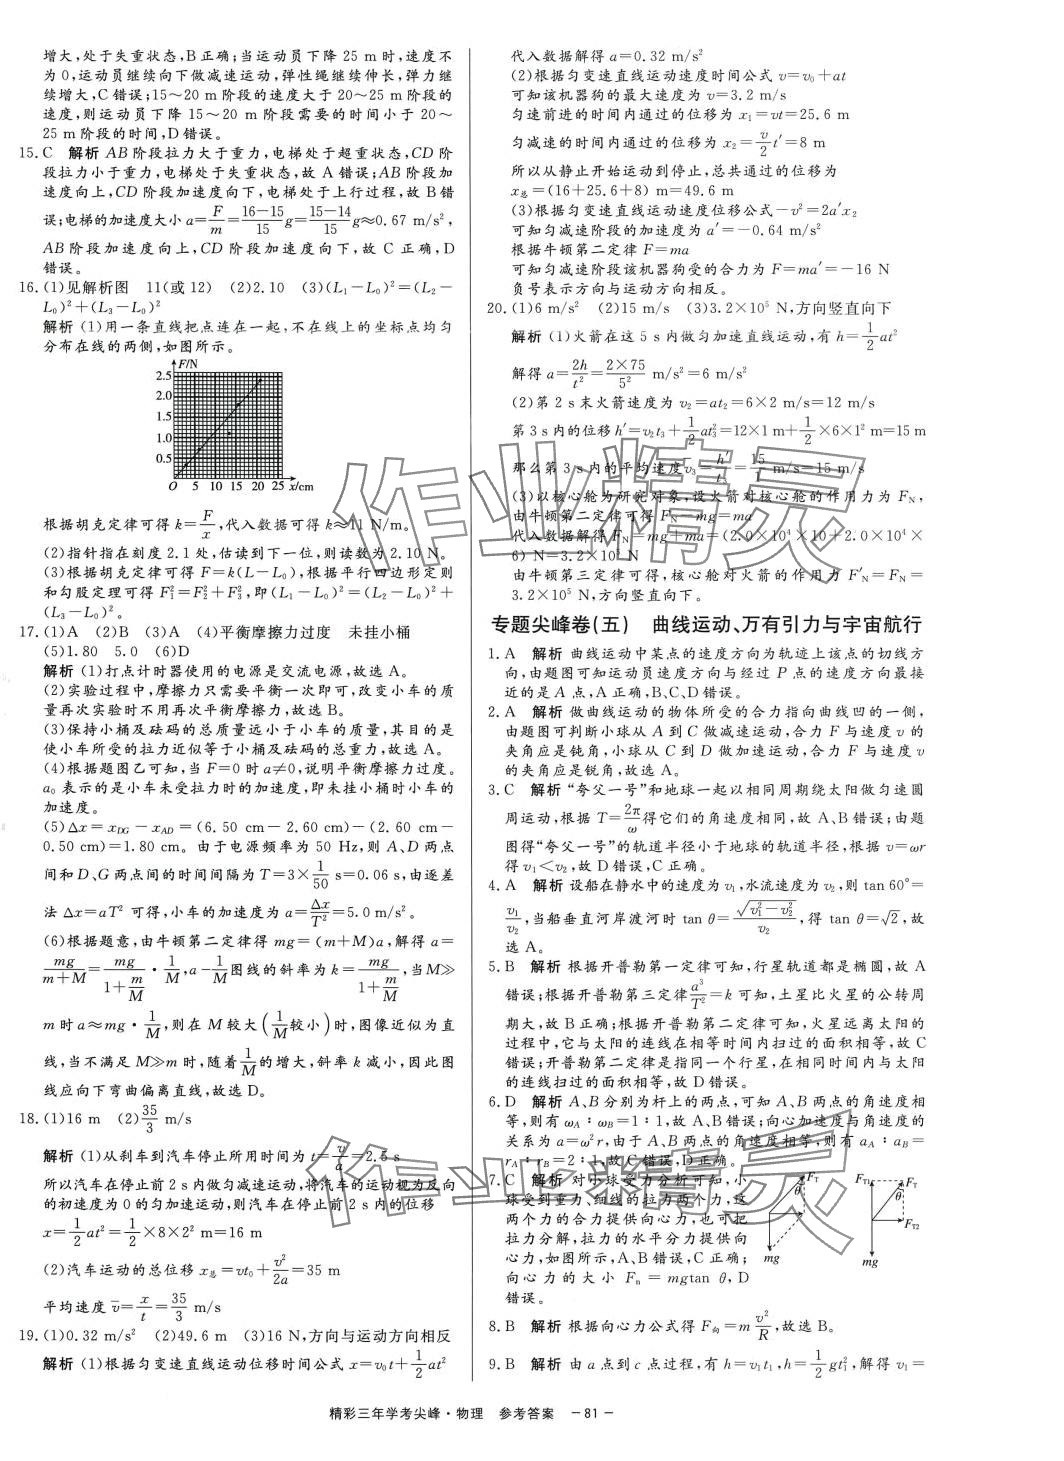 增大,处于失重状态,B正确;当运动员下降 25 m时,速度不
为0,运动员继续向下做减速运动,弹性绳继续伸长,弹力继
续增大,C错误;15～20 m阶段的速度大于20～25 m阶段的
速度,则运动员下降 15～20 m阶段需要的时间小于 20～
25 m阶段的时间,D错误。
15. C 解析 AB阶段拉力大于重力,电梯处于超重状态,CD阶
段拉力小于重力,电梯处于失重状态,故 A错误;AB阶段加
速度向上,CD阶段加速度向下,电梯处于上行过程,故B错
误;电梯的加速度大小 a=F/m=(16-15)/15 g=(15-14)/15 g≈0.67 m/s²,
AB阶段加速度向上,CD阶段加速度向下,故 C 正确,D
错误。
16. (1)见解析图 11(或12) (2)2.10 (3)(L₁-L₀)²=(L₂-
L₀)²+(L₃-L₀)²
解析 (1)用一条直线把点连在一起,不在线上的坐标点均匀
分布在线的两侧,如图所示。
F/N
2.5
2.0
1.5
1.0
0.5
O 5 10 15 20 25 x/cm
根据胡克定律可得 k=F/x,代入数据可得 k≈11 N/m。
(2)指针指在刻度 2.1 处,估读到下一位,则读数为2.10 N。
(3)根据胡克定律可得 F=k(L-L₀),根据平行四边形定则
和勾股定理可得 F₁²=F₂²+F₃²,即(L₁-L₀)²=(L₂-L₀)²+
(L₃-L₀)²。
17. (1)A (2)B (3)A (4)平衡摩擦力过度 未挂小桶
(5)1.80 5.0 (6)D
解析 (1)打点计时器使用的电源是交流电源,故选 A。
(2)实验过程中,摩擦力只需要平衡一次即可,改变小车的质
量再次实验时不用再次平衡摩擦力,故选 B。
(3)保持小桶及砝码的总质量远小于小车的质量,其目的是
使小车所受的拉力近似等于小桶及砝码的总重力,故选 A。
(4)根据题图乙可知,当F=0时a≠0,说明平衡摩擦力过度。
a₀ 表示的是小车未受拉力时的加速度,即未挂小桶时小车的
加速度。
(5)△x=x_DG-x_AD=(6.50 cm-2.60 cm)-(2.60 cm-
0.50 cm)=1.80 cm。由于电源频率为 50 Hz,则 A、D两点
间和D、G两点间的时间间隔为 T=3×1/50 s=0.06 s,由逐差
法 △x=aT² 可得,小车的加速度为 a=△x/T²=5.0 m/s²。
(6)根据题意,由牛顿第二定律得 mg=(m+M)a,解得 a=
mg/(m+M)=mg/(1+m/M)·1/M,a-1/M图线的斜率为k=mg/(1+m/M),当M≫
m时a≈mg·1/M,则在M较大(1/M较小)时,图像近似为直
线,当不满足 M≫m 时,随着1/M的增大,斜率 k减小,因此图
线应向下弯曲偏离直线,故选 D。
18. (1)16 m (2)35/3 m/s
解析 (1)从刹车到汽车停止所用时间为 t=v/a=2.5 s
所以汽车在停止前2 s内做匀减速运动,将汽车的运动视为反向
的初速度为0的匀加速运动,则汽车在停止前2 s内的位移
x=1/2 at²=1/2×8×2² m=16 m
(2)汽车运动的总位移 x总=vt₀+v²/2a=35 m
平均速度 v̄=x/t=35/3 m/s
19. (1)0.32 m/s² (2)49.6 m (3)16 N,方向与运动方向相反
解析 (1)根据匀变速直线运动位移时间公式 x=v₀t+1/2 at²
代入数据解得 a=0.32 m/s²
(2)根据匀变速直线运动速度时间公式 v=v₀+at
可知该机器狗的最大速度为 v=3.2 m/s
匀速前进的时间内通过的位移为 x₁=vt=25.6 m
匀减速的时间内通过的位移为 x₂=v/2 t′=8 m
所以从静止开始运动到停止,总共通过的位移为
x总=(16+25.6+8) m=49.6 m
(3)根据匀变速直线运动速度位移公式-v²=2a′x₂
可知匀减速阶段的加速度为 a′=-0.64 m/s²
根据牛顿第二定律 F=ma
可知匀减速阶段该机器狗受的合力为 F=ma′=-16 N
负号表示方向与运动方向相反。
20. (1)6 m/s² (2)15 m/s (3)3.2×10⁵ N,方向竖直向下
解析 (1)火箭在这 5 s内做匀加速直线运动,有 h=1/2 at²
解得 a=2h/t²=2×75/5² m/s²=6 m/s²
(2)第 2 s末火箭速度为 v₂=at₂=6×2 m/s=12 m/s
第3 s内的位移h′=v₂t₃+1/2 at₃²=12×1 m+1/2×6×1² m=15 m
那么第 3 s内的平均速度v̄₃=h′/t₃=15/1 m/s=15 m/s
(3)以核心舱为研究对象,设火箭对核心舱的作用力为 F_N,
由牛顿第二定律可得 F_N-mg=ma
代入数据解得 F_N=mg+ma=(2.0×10⁴×10+2.0×10⁴×
6) N=3.2×10⁵ N
由牛顿第三定律可得,核心舱对火箭的作用力 F′_N=F_N=
3.2×10⁵ N,方向竖直向下。
专题尖峰卷(五) 曲线运动、万有引力与宇宙航行
1. A 解析 曲线运动中某点的速度方向为轨迹上该点的切线方
向,由题图可知运动员速度方向与经过 P 点的速度方向最接
近的是 A 点,A 正确,B、C、D错误。
2. A 解析 做曲线运动的物体所受的合力指向曲线凹的一侧,
由题图可判断小球从 A 到 C 做减速运动,合力 F 与速度 v 的
夹角应是钝角,小球从 C 到 D 做加速运动,合力 F 与速度 v
的夹角应是锐角,故选 A。
3. C 解析 “夸父一号”和地球一起以相同周期绕太阳做匀速圆
周运动,根据 T=2π/ω得它们的角速度相同,故 A、B错误;由题
图得“夸父一号”的轨道半径小于地球的轨道半径,根据 v=ωr
得 v₁<v₂,故 D错误,C 正确。
4. A 解析 设船在静水中的速度为 v₁,水流速度为 v₂,则 tan 60°=
v₁/v₂,当船垂直河岸渡河时 tan θ=√(v₁²-v₂²)/v₂,得 tan θ=√2,故
选 A。
5. B 解析 根据开普勒第一定律可知,行星轨道都是椭圆,故 A
错误;根据开普勒第三定律a³/T²=k 可知,土星比火星的公转周
期大,故 B正确;根据开普勒第二定律可知,火星远离太阳的
过程中,它与太阳的连线在相等时间内扫过的面积相等,故 C
错误;开普勒第二定律是指同一个行星,在相同时间内与太阳
的连线扫过的面积相等,故 D错误。
6. D 解析 A、B分别为杆上的两点,可知 A、B 两点的角速度相
等,则有 ω_A∶ω_B=1∶1,故 A、B错误;向心加速度与角速度的
关系为 a=ω²r,由于 A、B 两点的角速度相等,则有 a_A∶a_B=
r_A∶r_B=2∶1,故C错误,D正确。
7. C 解析 对小球受力分析可知,小
球受到重力、细线的拉力两个力,这
两个力的合力提供向心力,也可把
拉力分解,拉力的水平分力提供向
心力,如图所示,A、B错误,C 正确;
向心力的大小 Fₙ=mgtan θ,D
错误。
θ F_T mg
F_T1 θ F_T F_T2 mg
8. B 解析 根据向心力公式得 F向=m v²/R,故选 B。
9. B 解析 由 a 点到 c 点过程,有 h=v₁t₁,h=1/2 gt₁²,解得 v₁=
精彩三年学考尖峰·物理 参考答案 -81-
作业精灵
作业精灵